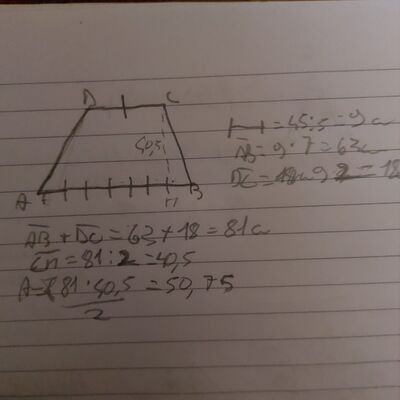 D C
40,5
A H B
⊢⊣ = 45:5 = 9 c
AB = 9 · 7 = 63 c
DC = 9 2 = 18
AB + DC = 63 + 18 = 81 c
CH = 81 : 2 = 40,5
A = 81 · 40,5 = 50,75
2